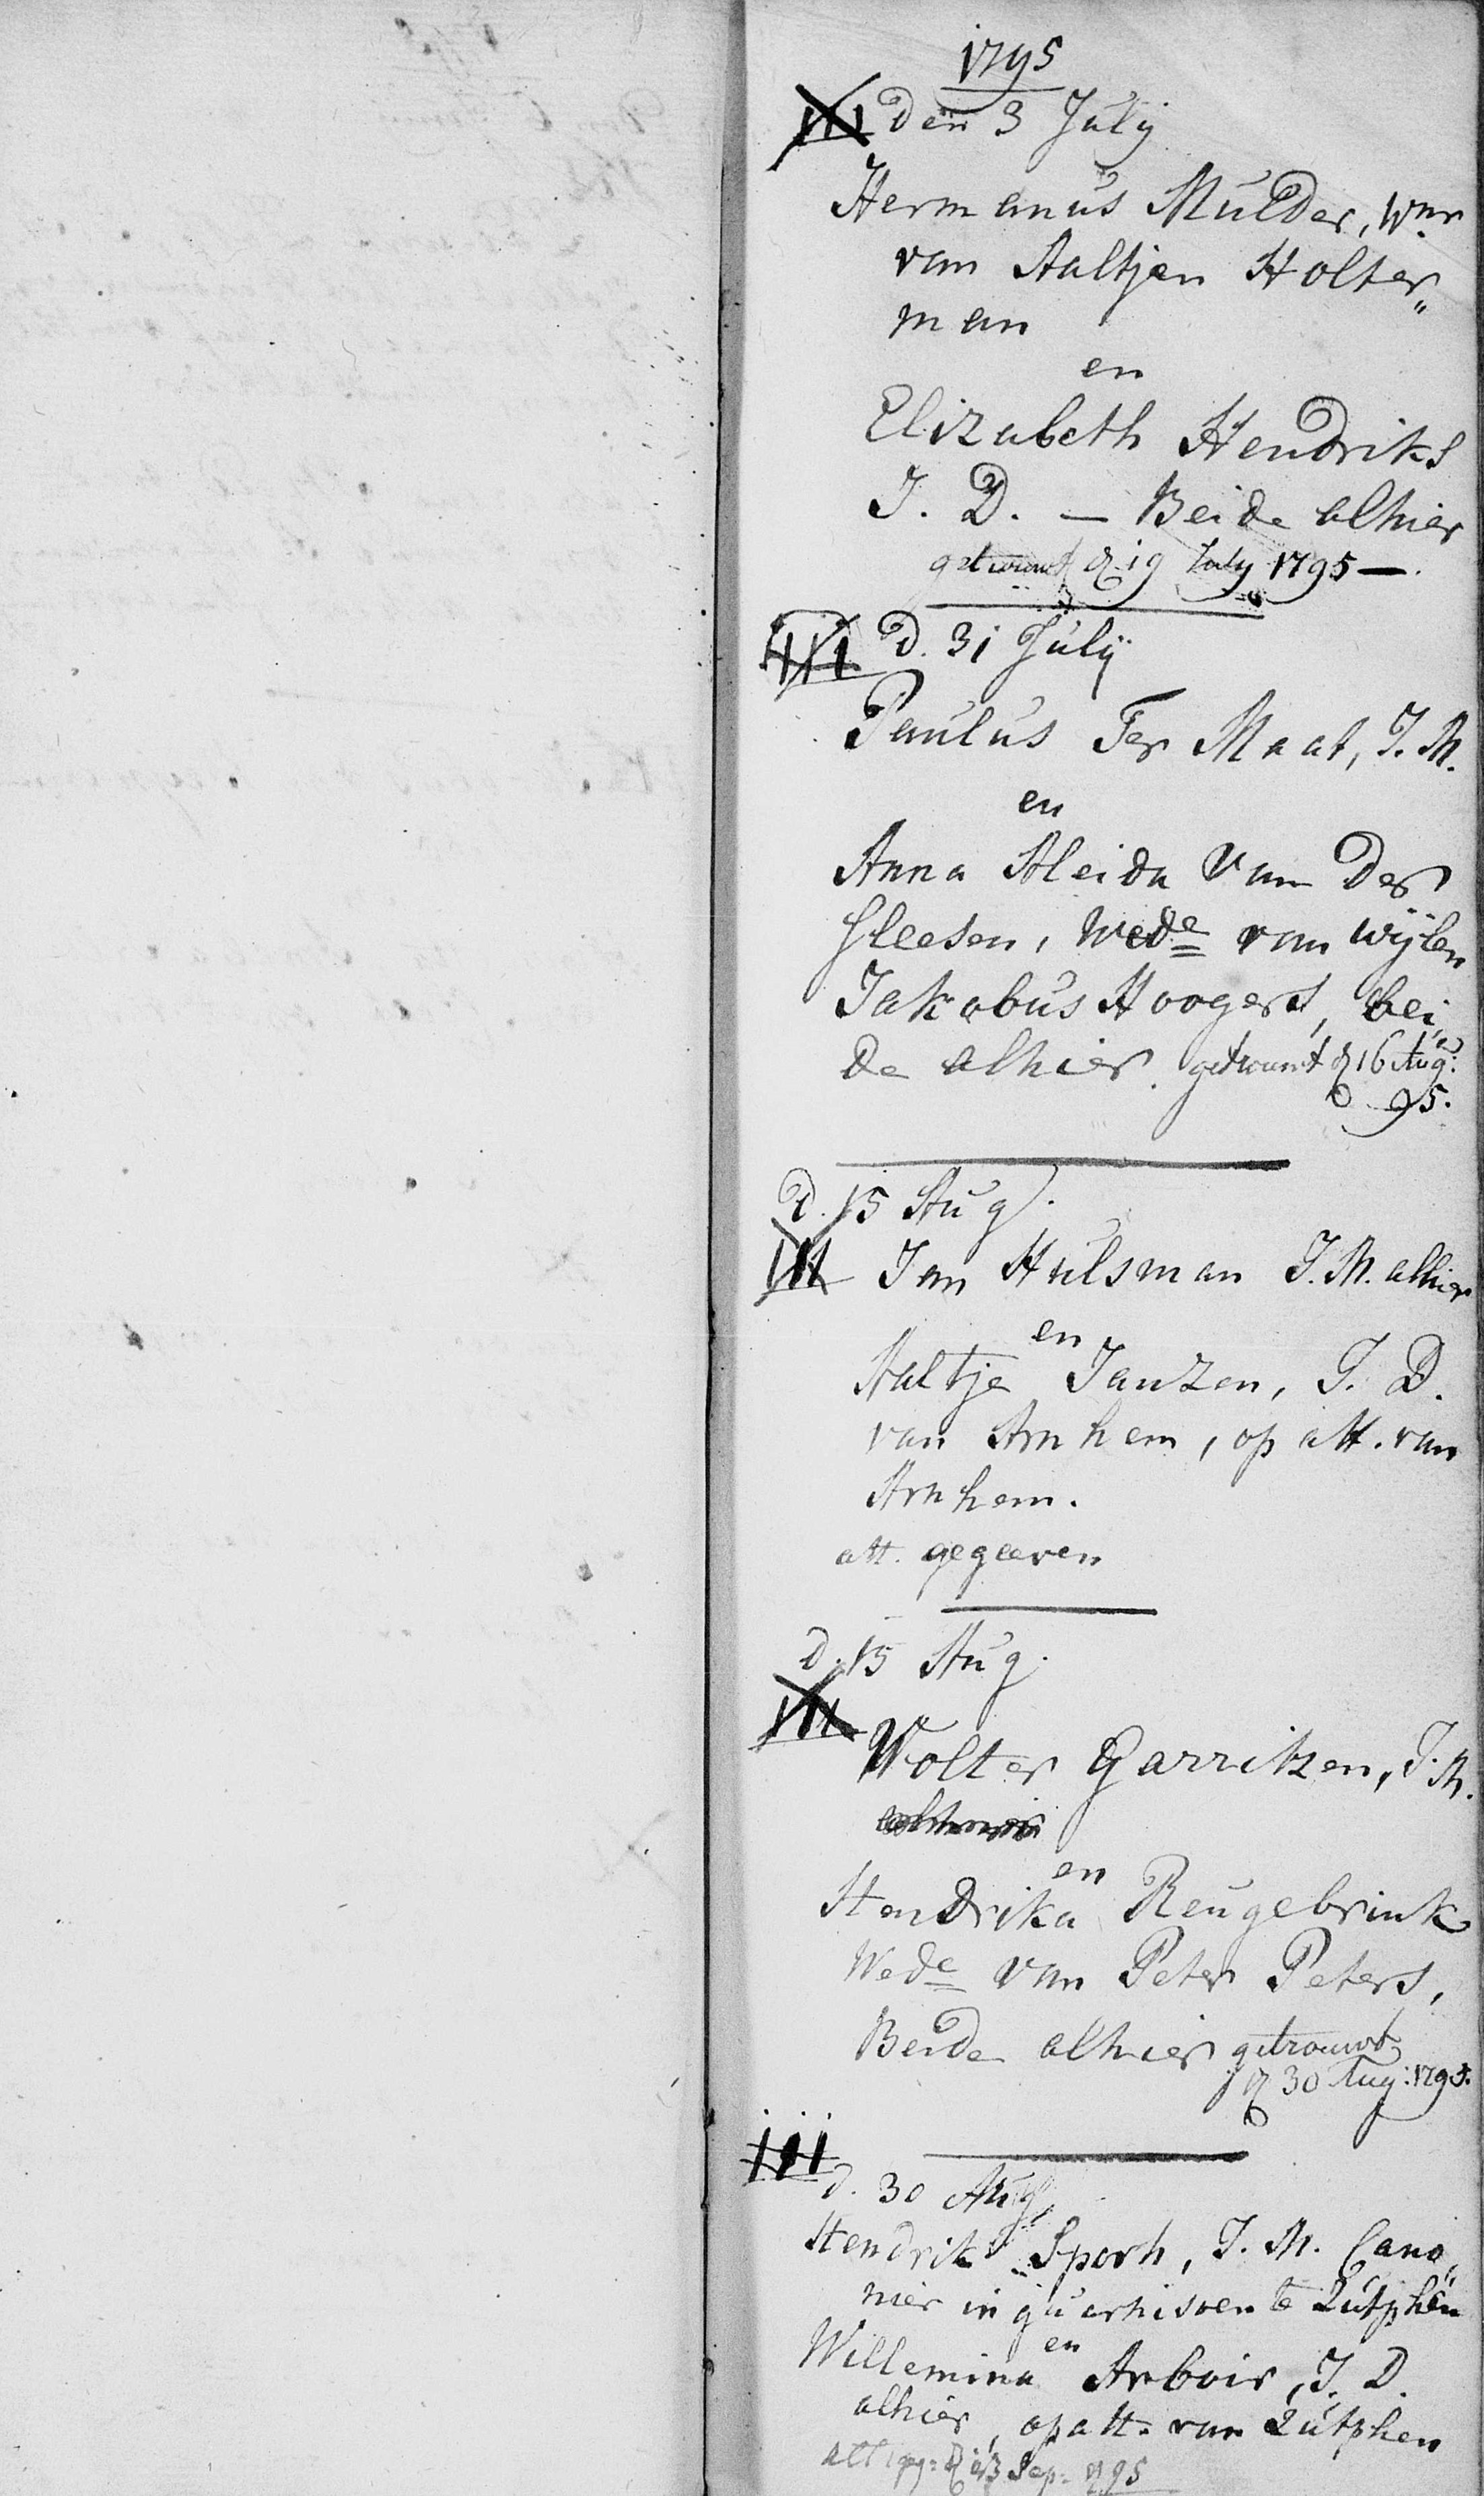 1795
III Den 3 Julij
Hermanus Mulder, Wnr
van Aaltjen Holter„
man
en
Elizabeth Hendriks
J. D. — Beide alhier
getrouwt d 19 July 1795 —.
III D. 31 Julij
Paulus Ter Maat, J. M.
en
Anna Aleida van Der
Sleesen, Wede van wijlen
Jakobus Hoogers, bei„
de alhier. getrouwt d 16 Aug:
95.
D. 15 Aug.
III Jan Hulsman J. M. alhier
en
Aaltje Janzen, J. D.
van Arnhem, op att. van
Arnhem.
att. gegeeven
D. 15 Aug.
III
Wolter Garritzen, J. M.
en
Hendrika Reugebrink
Wede van Peter Peters,
Beide alhier getrouwt
d 30 Aug: 1795.
III
d. 30 Aug
Hendrik Sporh, J. M. Cano„
nier in guarnisoen te Zutphen
en
Willemina Arbois, J. D.
alhier, op att. van Zutphen
att geg= d 13 Sep= 1795